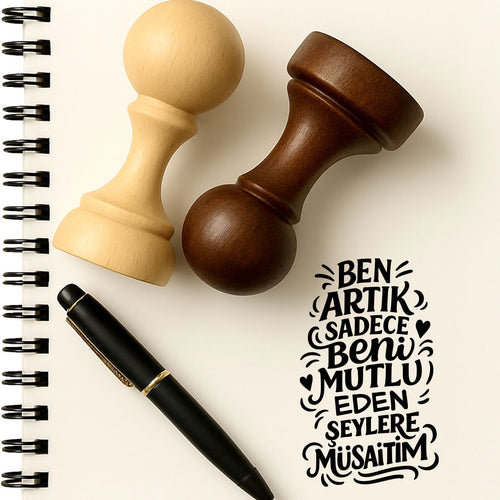 BEN
ARTIK
SADECE
Beni
MUTLU
EDEN
ŞEYLERE
MÜSAİTİM